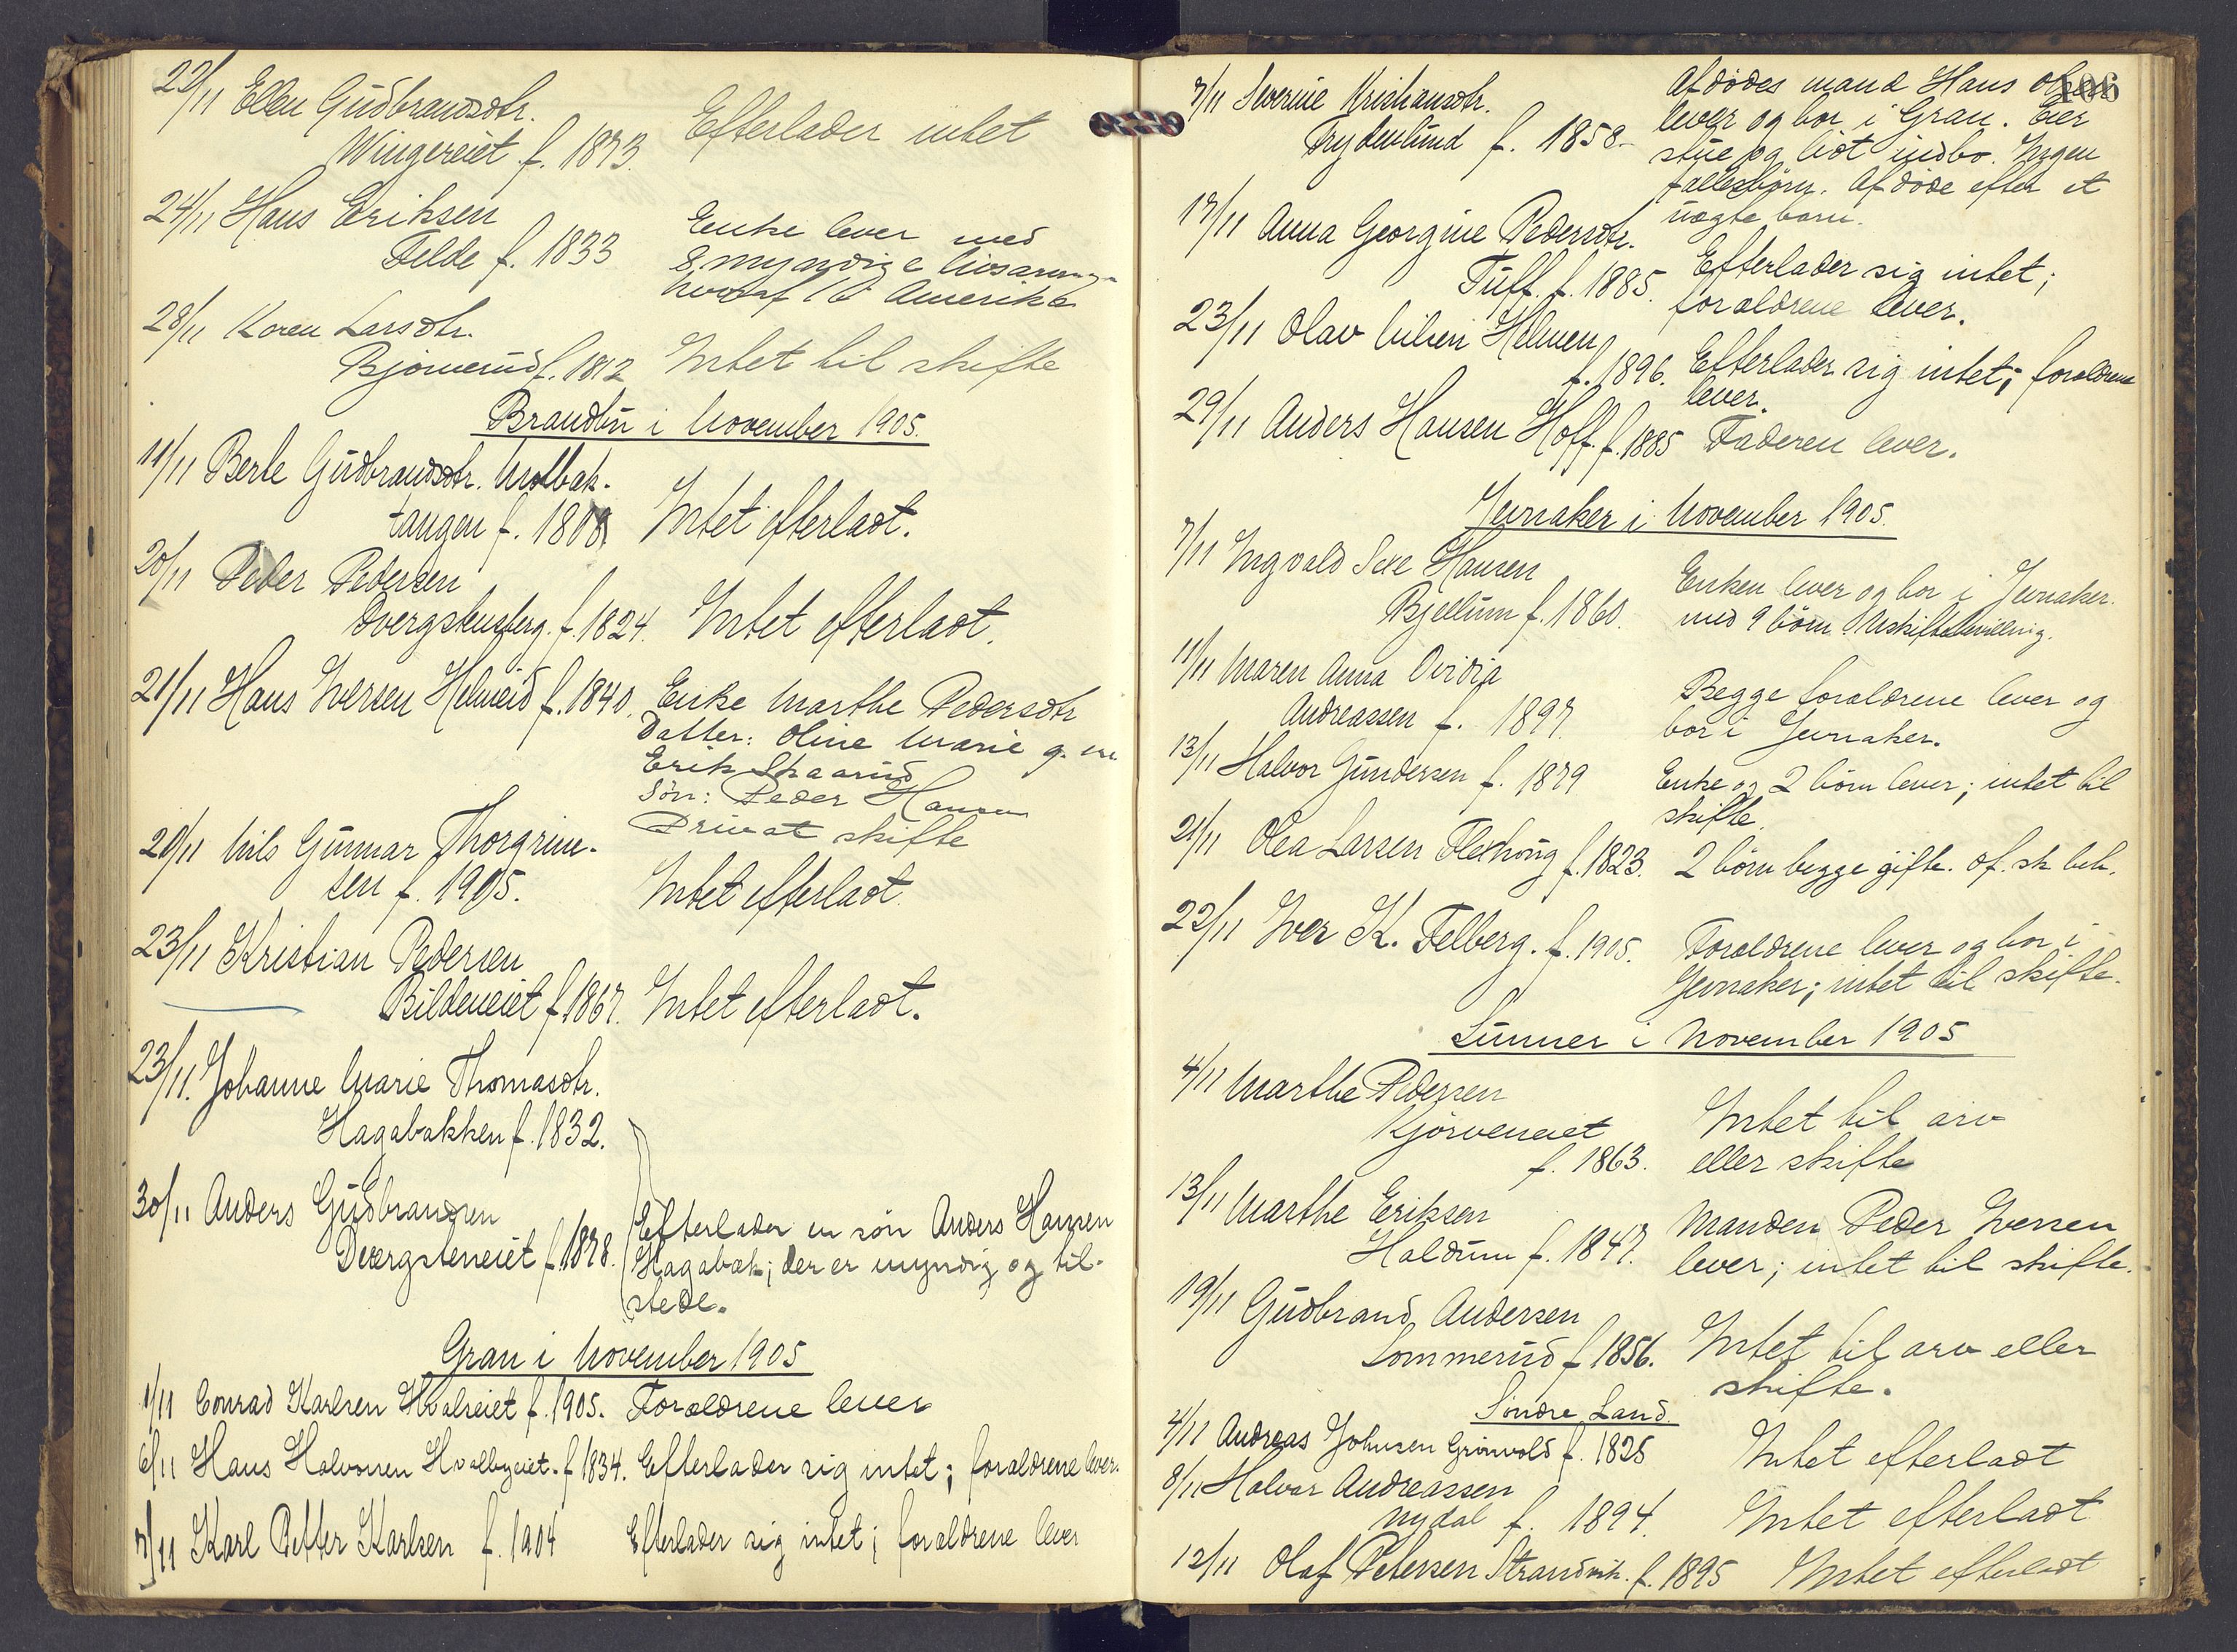 22/11 Ellen Gudbrandsdtr.
Wingereiet f. 1873. Efterlader intet
24/11 Hans Eriksen
Felde f. 1833 Enke lever med
8 myndige livsarvinger
hvoraf 1 i Amerika
28/11 Karen Larsdtr.
Bjørnerud f. 1812 Intet til skifte
Brandbu i November 1905.
11/11 Berte Gudbrandsdtr. Molbak-
tangen f. 1808 Intet efterladt.
20/11 Peder Pedersen
Dvergstensberg. f. 1824. Intet efterladt.
21/11 Hans Iversen Helmeid f. 1840. Enke Marthe Pedersdtr
Datter: Oline Marie g. m.
Erik Skaarud
Søn: Peder Hansen
Privat skifte
20/11 Nils Gunnar Thorgrim-
sen f. 1905. Intet efterladt.
23/11 Kristian Pedersen
Bildeneiet f. 1867. Intet efterladt.
23/11. Johanne Marie Thomasdtr.
Hagabakken f. 1832.
30/11 Anders Gudbrandsen
Dvergsteneiet f. 1878. Efterlader en søn Anders Hansen
Hagabak; der er myndig og til-
stede.
Gran i November 1905
1/11 Conrad Karlsen Hvalseiet f. 1905. Forældrene lever
6/11 Hans Halvorsen Hvalbyeiet. f. 1834. Efterlader sig intet; forældrene lever.
7/11 Karl Petter Karlsen f. 1904 Efterlader sig intet; forældrene lever
106
7/11 Severine Kristiansdtr.
Frydenlund f. 1858. Afdødes mand Hans Olsen
lever og bor i Gran. Eier
stue og lidt indbo. Ingen
fællesbørn. Afdøde efter et
uægte barn.
17/11 Anna Georgine Pedersdtr.
Tuff. f. 1885. Efterlader sig intet;
forældrene lever.
23/11 Olav Nilsen Helmen
f. 1896. Efterlader sig intet; forældrene
lever.
29/11 Anders Hansen Hoff. f. 1885 Faderen lever.
Jevnaker i November 1905.
7/11 Ingvald Hansen
Bjellum f. 1860. Enken lever og bor i Jevnaker.
med 9 børn. Uskiftetbevilling.
11/11 Maren Anna Ovidia
Andreassen f. 1897. Begge forældrene lever og
bor i Jevnaker.
13/11 Halvor Gundersen f. 1879 Enke og 2 børn lever; intet til
skifte.
21/11 Olea Larsen Flethong f. 1823. 2 børn begge gifte. of. sk. beh.
22/11 Iver K. Felberg. f. 1905. Forældrene lever og bor i
Jevnaker; intet til skifte.
Lunner i November 1905
4/11 Marthe Pedersen
Kjørveneiet
f. 1863. Intet til arv
eller skifte
13/11 Marthe Eriksen
Haldum f. 1847. Manden Peder Iversen
lever; intet til skifte.
19/11 Gudbrand Andersen
Sommerud f. 1856. Intet til arv eller
skifte.
Søndre Land.
4/11 Andreas Johnsen Grønvold f. 1828 Intet efterladt
8/11 Halvor Andreassen
Nydal f. 1894. Intet efterladt
12/11 Olaf Petersen Strandvik. f. 1895 Intet efterladt